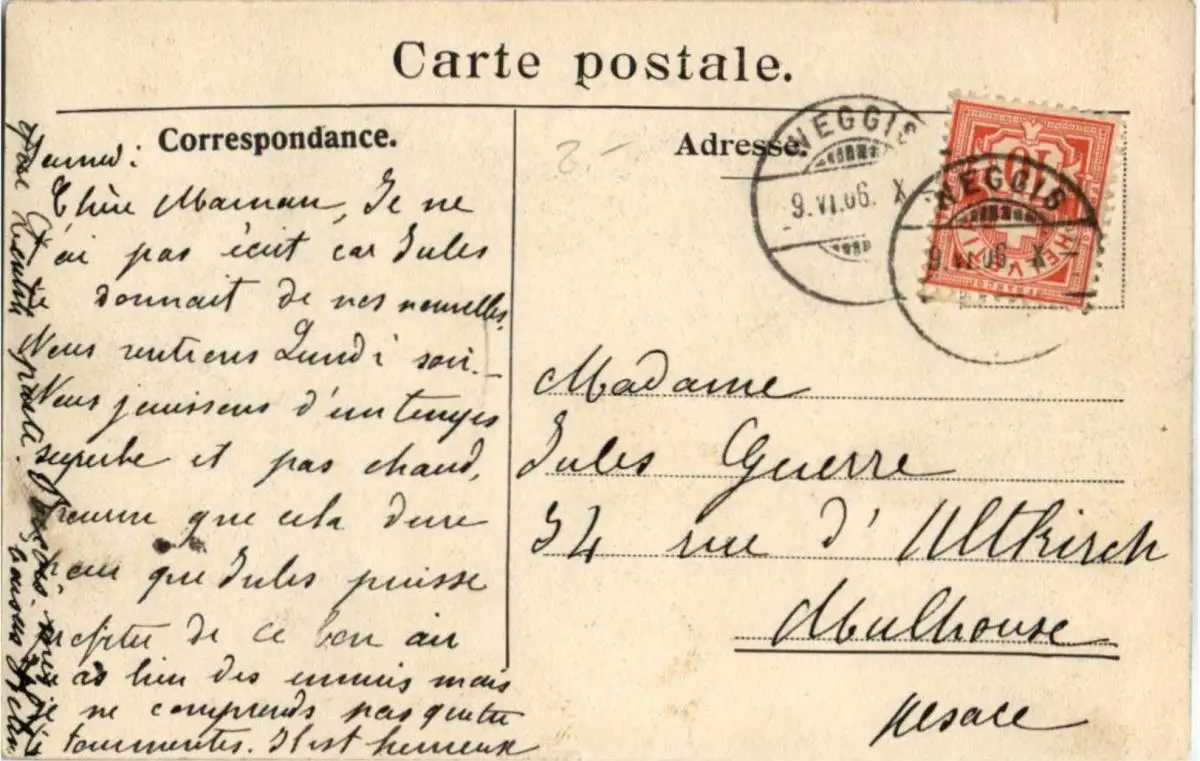 Carte postale.
Correspondance.
Adresse.
2 -
WEGGIS
9.VI.06. X
WEGGIS
9.VI.06 X
10
HELVETIA
FRANCO
Samedi:
Chère Maman, Je ne
t'ai pas écrit car Jules
donnait de nos nouvelles.
Nous rentrons Lundi soir. -
Nous jouissons d'un temps
superbe et pas chaud,
pourvu que cela dure
pour que Jules puisse
profiter de ce bon air
as bien des ennuis mais
je ne comprends pas que tu
te tourmentes. Il est heureux
que
Madame
Jules Guerre
34 rue d'Altkirch
Mulhouse
Alsace